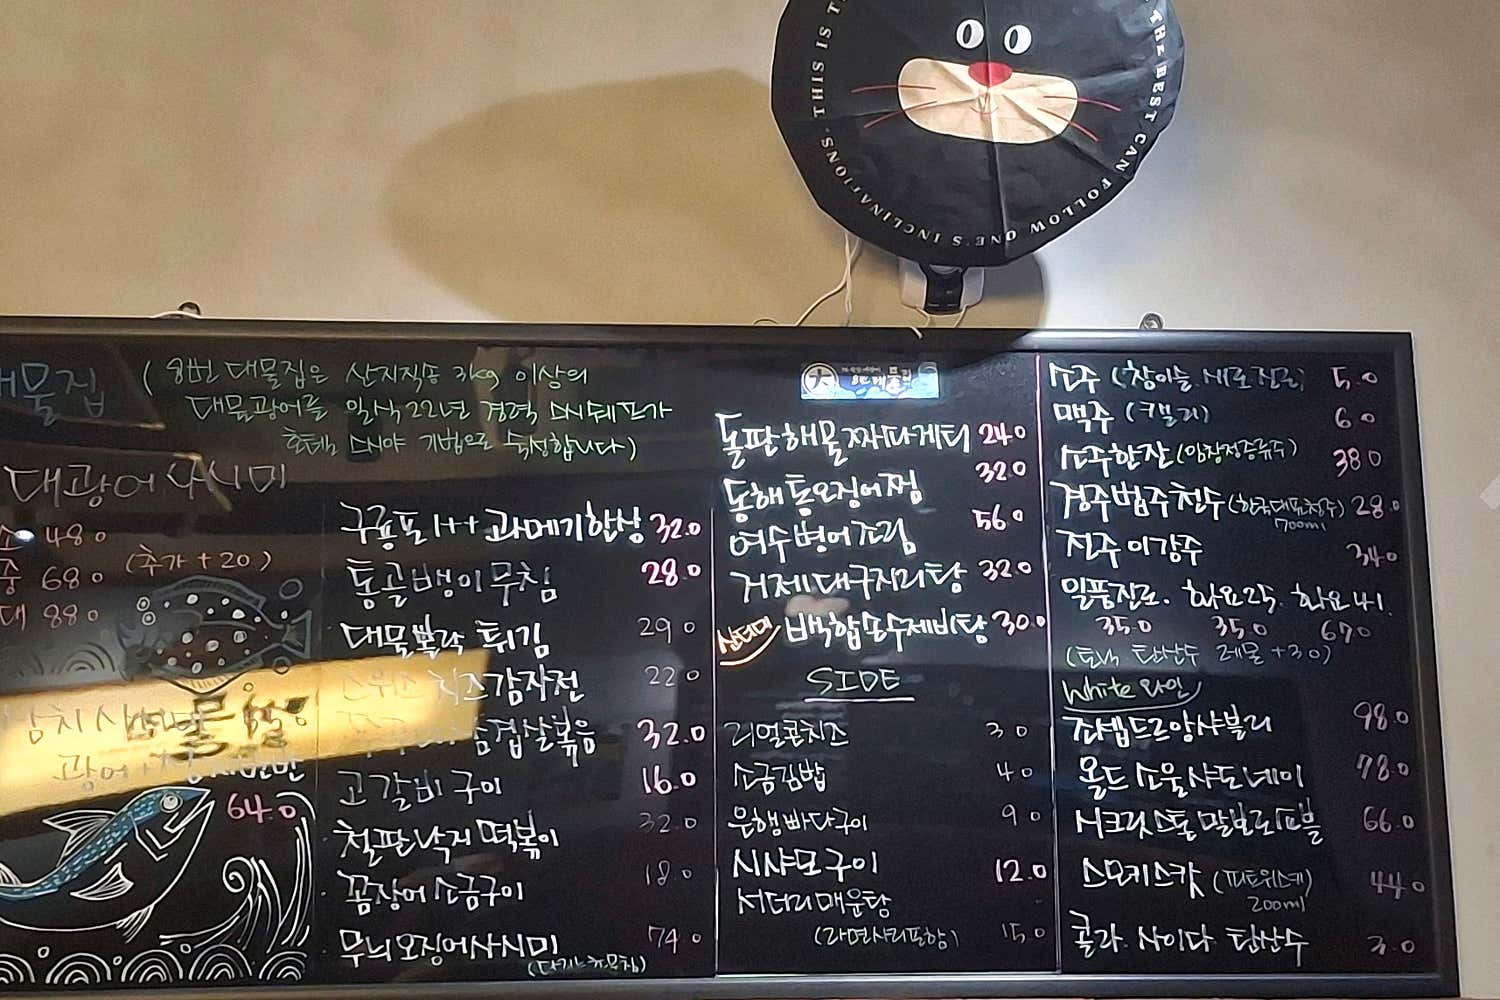 THIS IS T
THE BEST CAN FOLLOW ONE'S INCLINATIONS.
대물집 (8번 대물집은 산지직송 3kg 이상의
대물광어를 일식 22년 경력 쉐프가
숙성합니다)
대광어사시미
소 48.0
중 68.0 (추가 +20)
대 88.0
참치
광어
64.0
구룡포 1++ 과메기한상 32.0
통골뱅이무침 28.0
대물볼락 튀김 29.0
치즈감자전 22.0
삼겹살볶음 32.0
고갈비 구이 16.0
철판낙지 떡볶이 32.0
꼼장어 소금구이 18.0
무늬오징어사시미 74.0
돌판해물짜파게티 24.0
동해통오징어찜 32.0
여수병어조림 56.0
거제대구지리탕 32.0
백합손수제비탕 30.0
SIDE
리얼콘치즈 3.0
소금김밥 4.0
은행빠다구이 9.0
시샤모구이 12.0
서더리매운탕
(라면사리포함) 15.0
소주 (참이슬. 새로. 진로) 5.0
맥주 (켈리) 6.0
소주한잔 (임창정증류주) 38.0
경주법주천수 (한국대표청주) 28.0
700ml
전주이강주 34.0
일품진로. 화요25. 화요41.
35.0 35.0 67.0
(토닉 탄산수 레몬 +3.0)
White 와인
죠셉드르앙샤블리 98.0
올드소울샤도네이 78.0
시크릿스톤말보로쇼블 66.0
스모키스캇 (피트위스키) 44.0
200ml
콜라. 사이다 탄산수 3.0